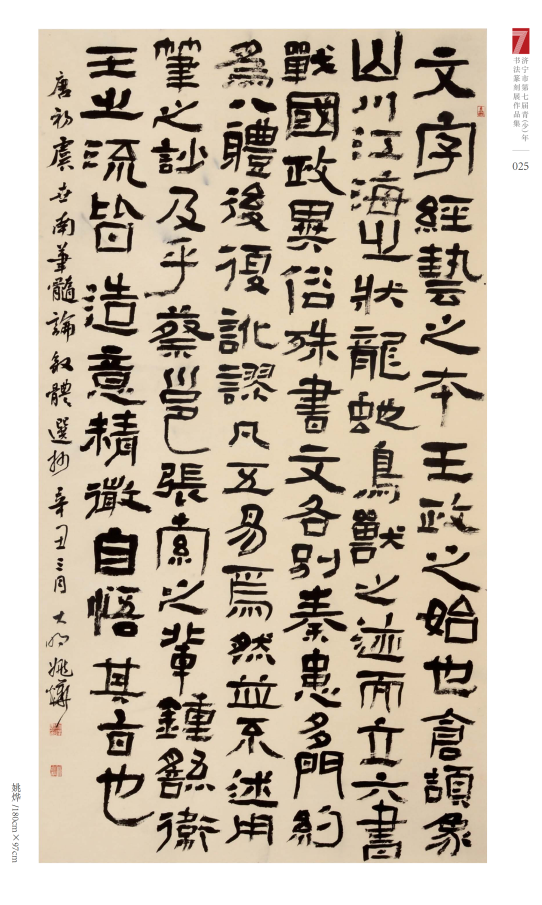 文字經藝之本王政之始也倉頡象
山川江海之狀龍蛇鳥獸之迹而立六書
戰國政異俗殊書文各別秦患多門約
爲八體後復訛謬凡五易焉然並不述用
筆之訣及乎蔡邕張索之輩鍾繇衛
王之流皆造意精微自悟其旨也
唐初虞世南筆髓論敘體選抄辛丑三月大明姚燁
7
济宁市第七届青(少)年
书法篆刻展作品集
025
姚烨/180cm×97cm